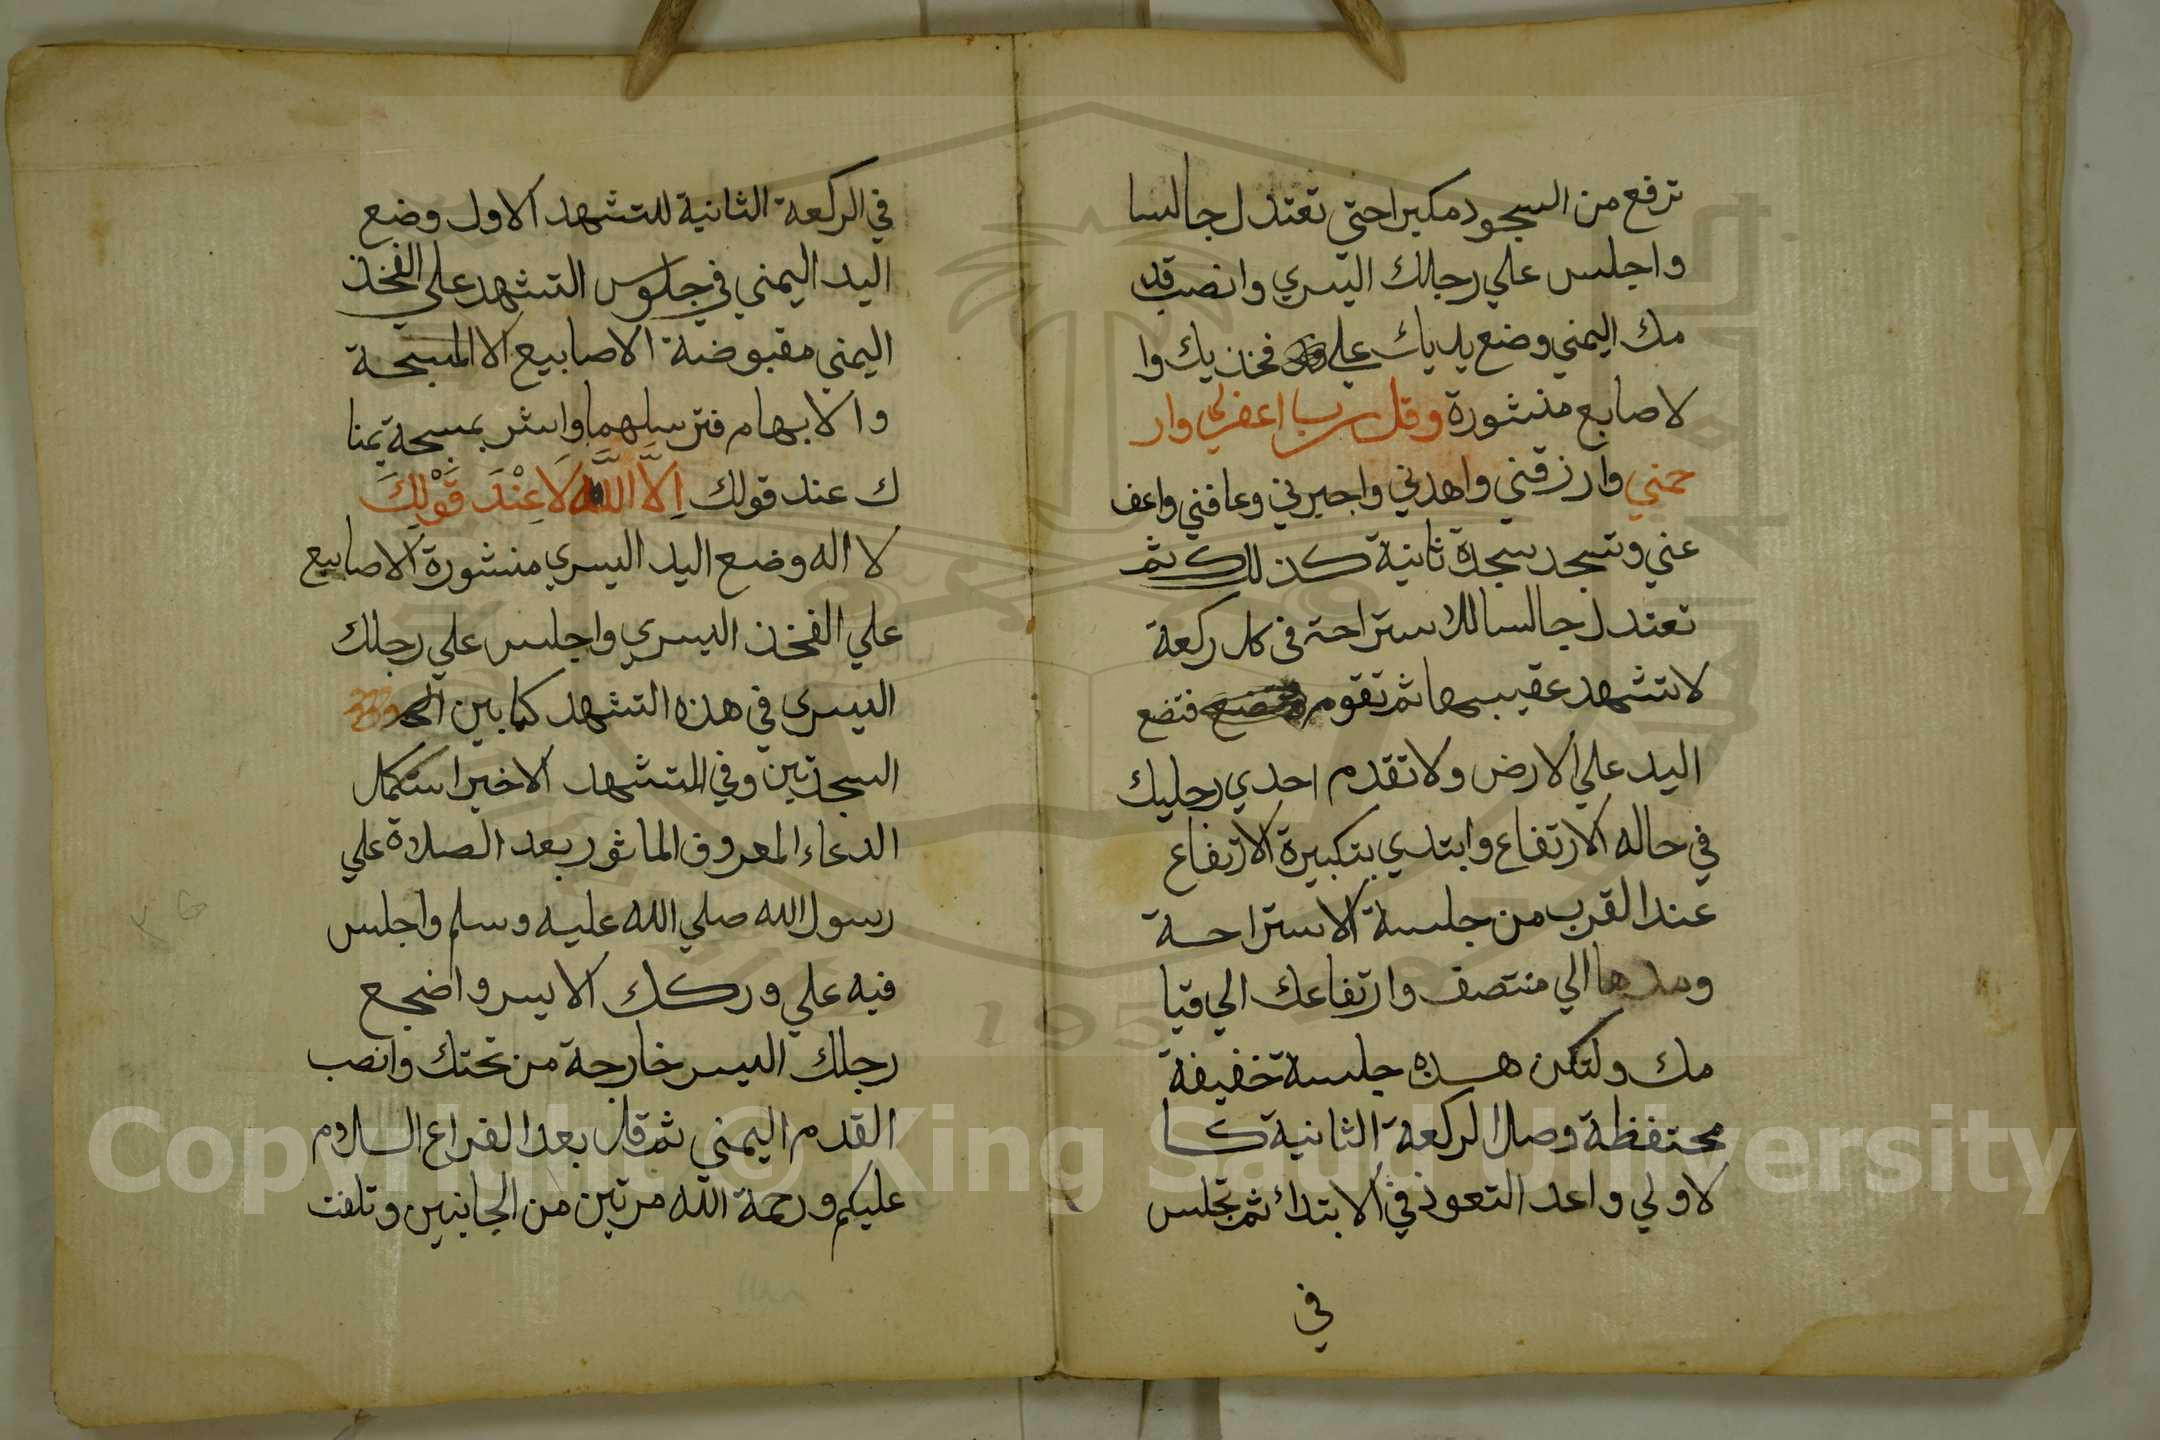 ترفع من السجود مكبرا حتي تعتدل جالسا
واجلس علي رجلك اليسري وانصب قد
مك اليمني وضع يديك علي فخذيك وا
لاصابع منشورة وقل رب اغفرلي وار
حمني وارزقني واهدني واجبرني وعافني واعف
عني وتسجد سجدة ثانية كذلك ثم
تعتدل جالسا للاستراحة في كل ركعة
لا تشهد عقيبها ثم تقوم فتضع
اليد علي الارض ولا تقدم احدي رجليك
في حاله الارتفاع وابتدي بتكبيرة الارتفاع
عند القرب من جلسة الاستراحة
ومدها الي منتصف وارتفاعك الي قيا
مك ولتكن هذه جلسة خفيفة
محتفظة وصل الركعة الثانية كا
لاولي واعد التعوذ في الابتداء ثم تجلس
في
في الركعة الثانية للتشهد الاول وضع
اليد اليمني في جلوس التشهد علي الفخذ
اليمني مقبوضة الاصابيع الا المسبحة
والابهام فترسلهما واشر بمسبحة يمنا
ك عند قولك اِلاَّ اللَّه لَا عِنْدَ قَوْلِكَ
لا اله وضع اليد اليسري منشورة الاصابيع
علي الفخذ اليسري واجلس علي رجلك
اليسري في هذه التشهد كما بين
السجدتين وفي المتشهد الاخير استكمال
الدعاء المعروف الماثور بعد الصلاة علي
رسول الله صلي الله عليه وسلم واجلس
فيه علي وركك الايسر واضجع
رجلك اليسر خارجة من تحتك وانصب
القدم اليمني ثم قل بعد الفراغ السلام
عليكم ورحمة الله مرتين من الجانبين وتلفت
Copyright © King Saud University